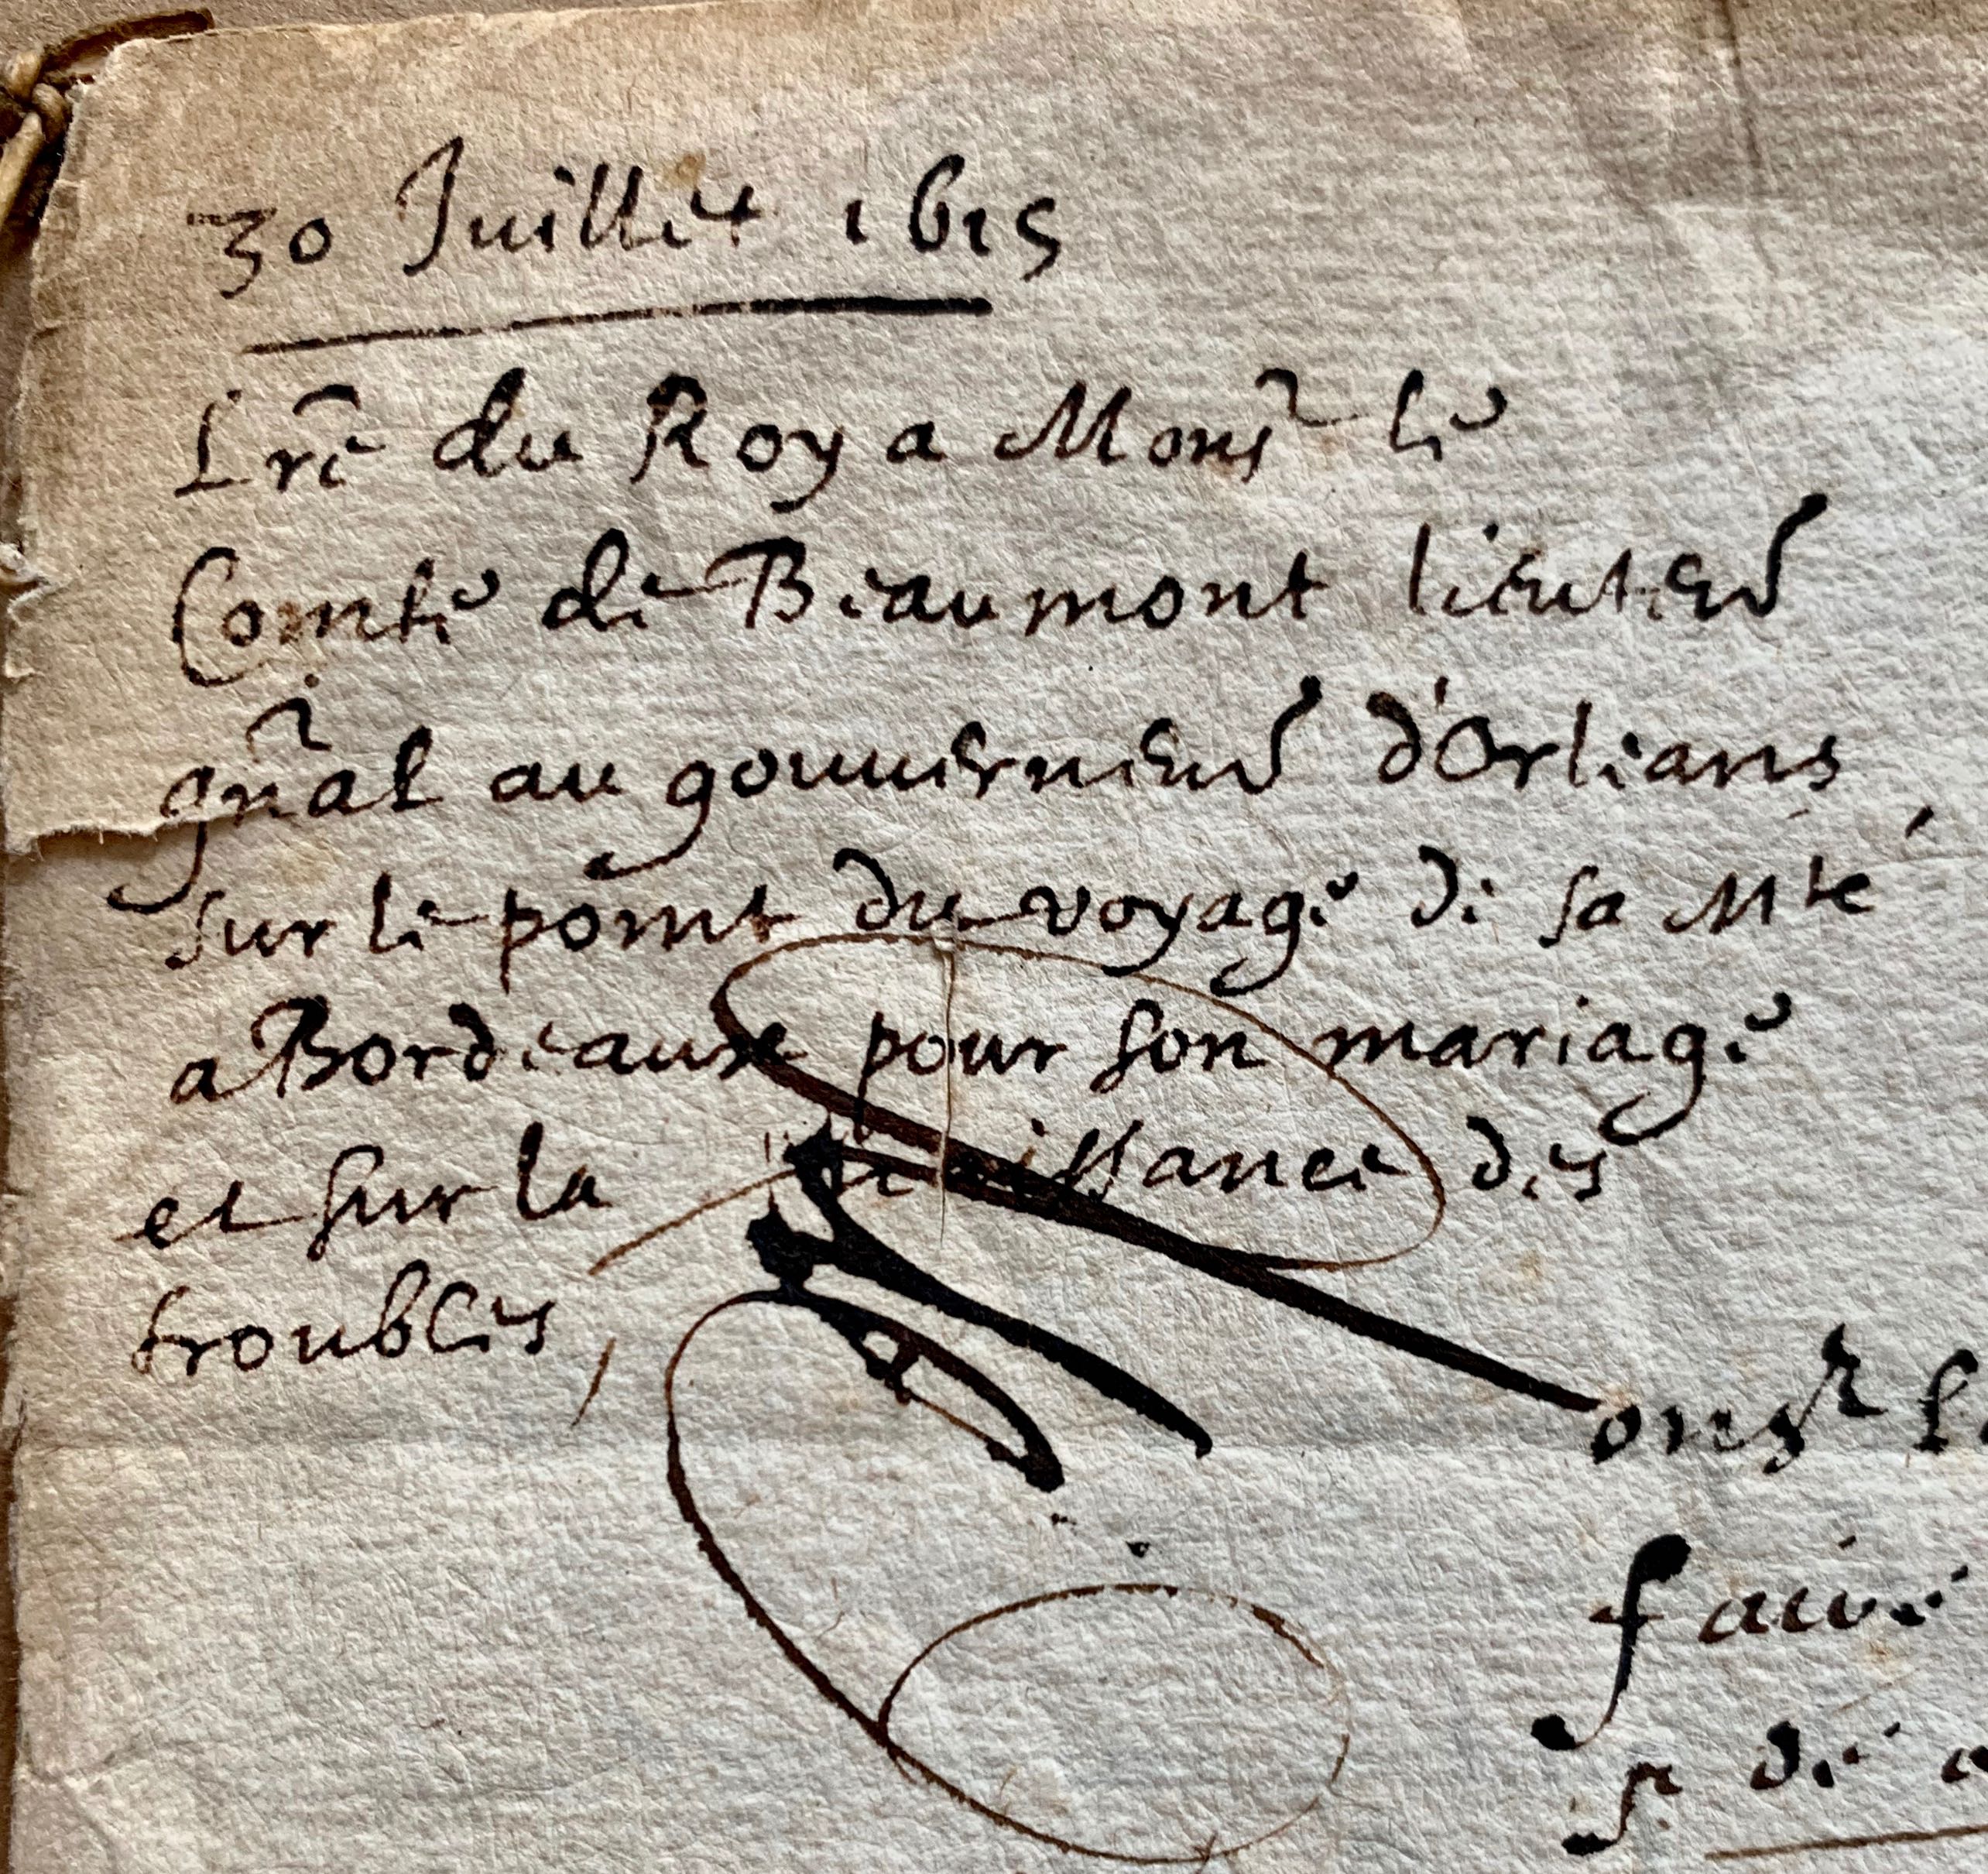 30 Juillet 1615
Lr̃e du Roy a Monsr le
Comte de Beaumont lieuten̄
gn̄al au gouuernem̄ d'Orleans,
sur le point du voyage de sa Mté
a Bordeaux pour son mariage
et sur la naissance des
troubles,
onsr le